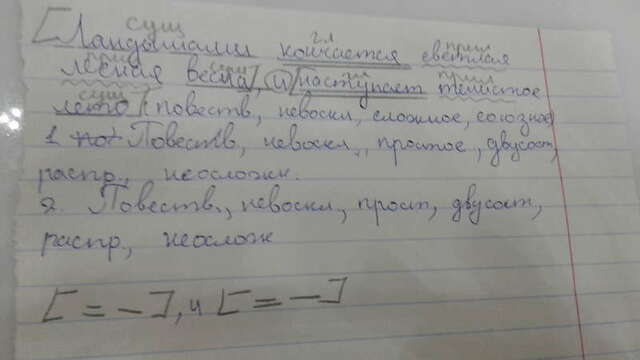 сущ гл прил
[Ландышами кончается светлая
прил сущ гл прил
лесная весна], и [наступает тенистое
сущ
лето] (повеств, невоскл, сложное, союзное)
1. Повеств, невоскл., простое, двусост,
распр., неосложн.
2. Повеств., невоскл, прост, двусост,
распр., неослож
[= –], и [= –]